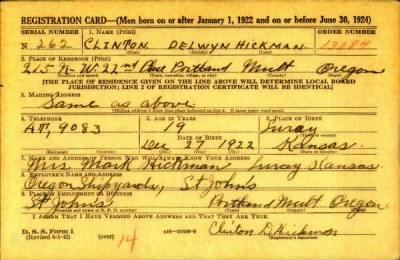 REGISTRATION CARD—(Men born on or after January 1, 1922 and on or before June 30, 1924)
SERIAL NUMBER 1. NAME (Print) ORDER NUMBER
N 262 CLINTON DELWYN HICKMAN 13084
(First) (Middle) (Last)
2. PLACE OF RESIDENCE (Print)
215 N.W. 22nd Ave Portland Mult Oregon
(Number and street) (Town, township, village, or city) (County) (State)
[THE PLACE OF RESIDENCE GIVEN ON THE LINE ABOVE WILL DETERMINE LOCAL BOARD
JURISDICTION; LINE 2 OF REGISTRATION CERTIFICATE WILL BE IDENTICAL]
3. MAILING ADDRESS
Same as above
4. TELEPHONE 5. AGE IN YEARS 6. PLACE OF BIRTH
AT, 9083 19 Luray
DATE OF BIRTH
Dec 27 1922 Kansas
7. NAME AND ADDRESS OF PERSON WHO WILL ALWAYS KNOW YOUR ADDRESS
Mrs Mark Hickman Luray Kansas
8. EMPLOYER'S NAME AND ADDRESS
Oregon Shipyards, St Johns
9. PLACE OF EMPLOYMENT OR BUSINESS
St Johns, Portland Mult Oregon
I AFFIRM THAT I HAVE VERIFIED ABOVE ANSWERS AND THAT THEY ARE TRUE.
D. S. S. Form 1
(Revised 6-1-42) (over) Clinton D. Hickman
14 (Registrant's signature)